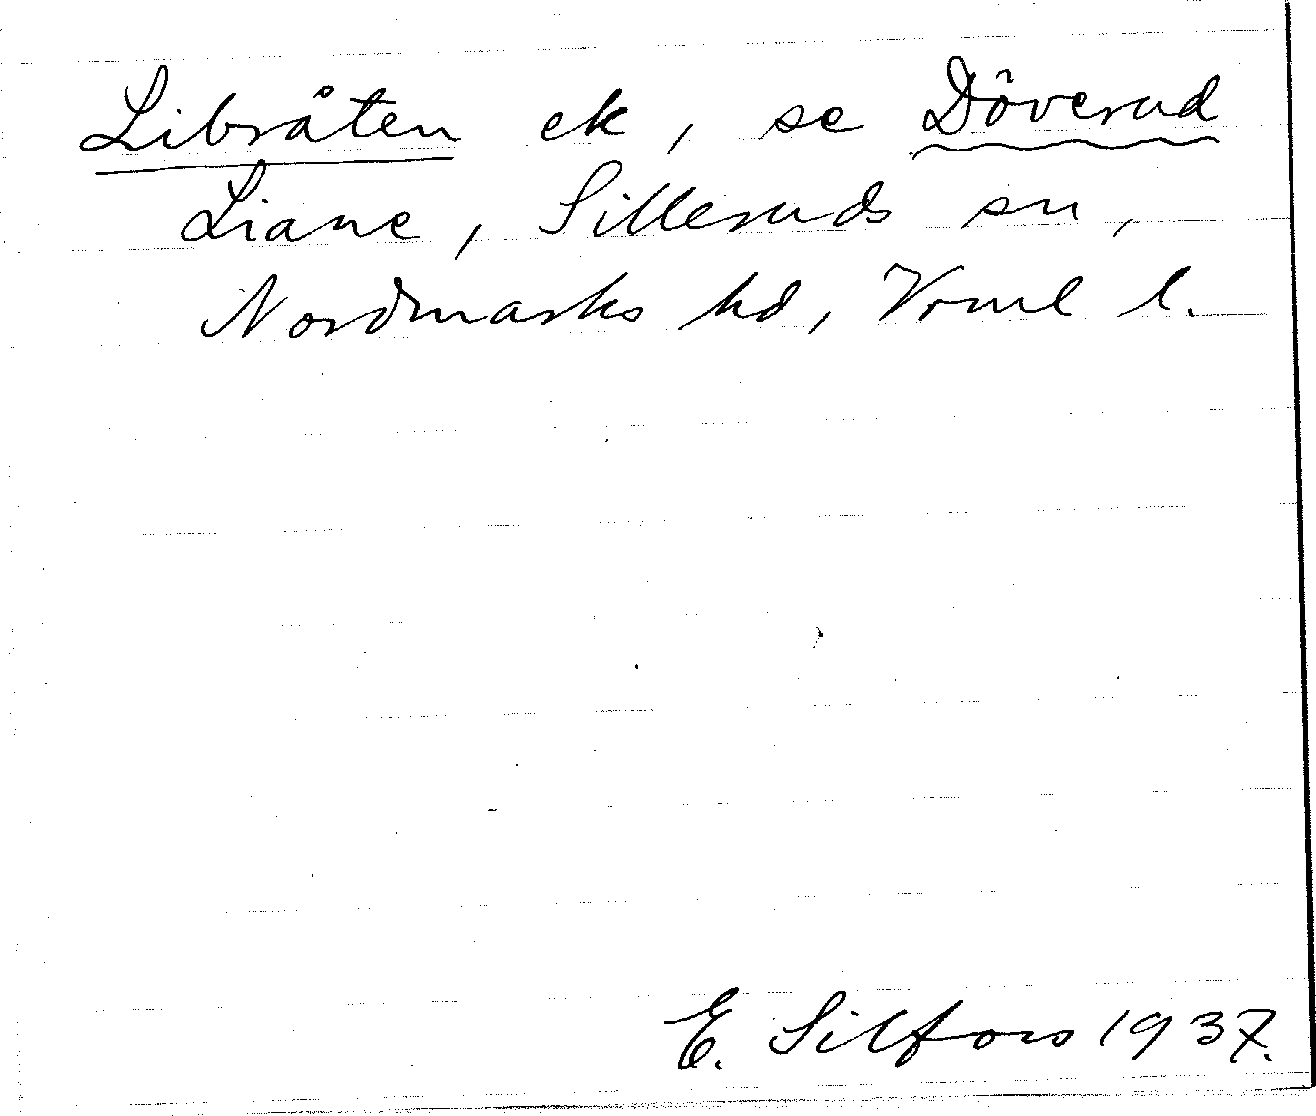 Libråten ek, se Döverud
Liane, Silleruds sn,
Nordmarks hd, Vrml l.
E. Silfors 1937.